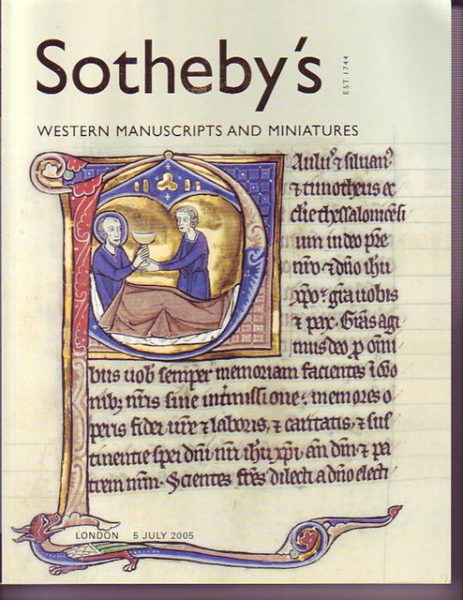 Sotheby's
EST. 1744
WESTERN MANUSCRIPTS AND MINIATURES
Aulus & siluan9
& timotheus ec
clie thessalonicēsi
um in deo pr̄e
nr̄o & dn̄o ihu
xp̄o gr̄a uobis
& pax. Gr̄as agi
mus deo p om̄i
bus uob semper memoriam facientes i
nr̄is sine intmissione memores o
peris fidei ur̄e & laboris, & caritatis, & sus
tinentie spei dn̄i nr̄i ihu xp̄i an̄ dm̄ & pa
trem nr̄m. Scientes fr̄es dilecti a dn̄o electi
LONDON 5 JULY 2005